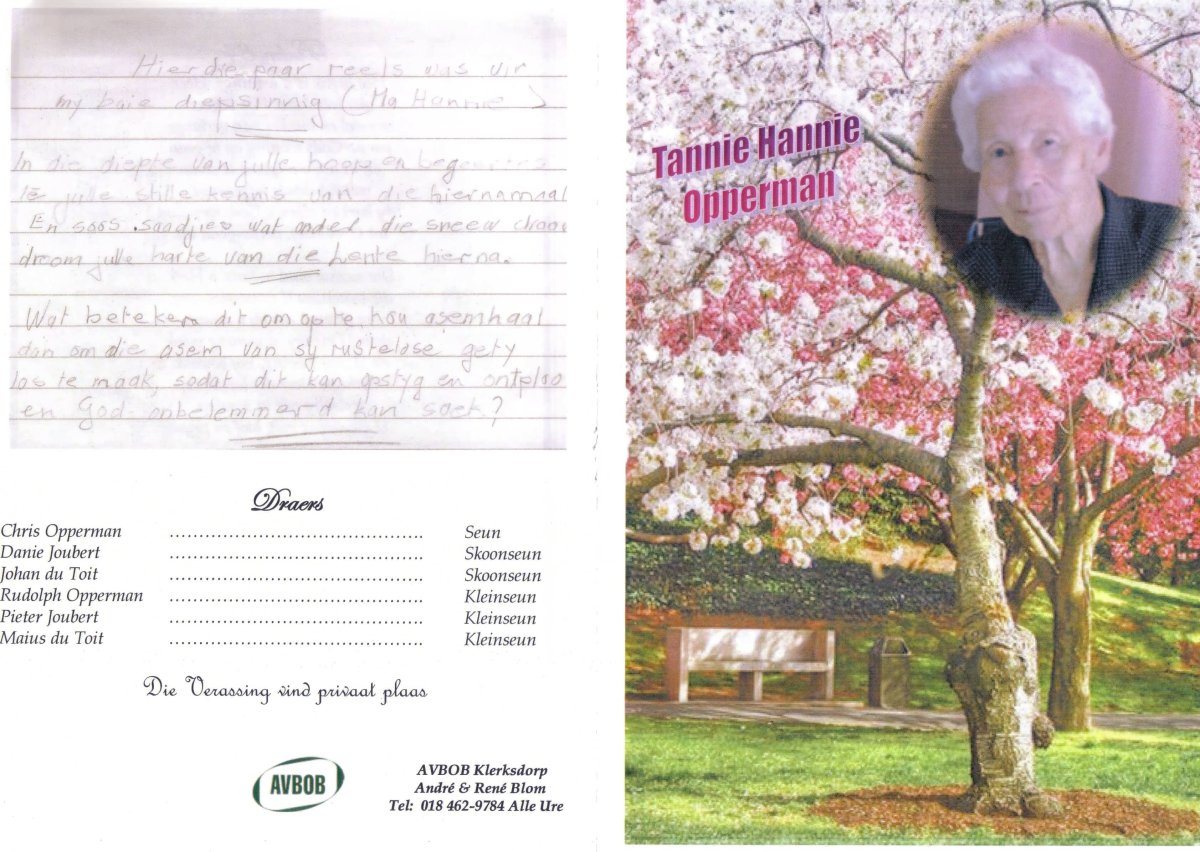 Hierdie paar reels was vir
my baie diepsinnig (Ma Hannie)
In die diepte van julle hoop en begeertes
lê julle stille kennis van die hiernamaal
En soos saadjies wat onder die sneeu droom
droom julle harte van die Lente hierna.
Wat beteken dit om op te hou asemhaal
dan om die asem van sy rustelose gety
los te maak, sodat dit kan opstyg en
en God onbelemmerd kan soek?
Draers
Chris Opperman ........................................... Seun
Danie Joubert ........................................... Skoonseun
Johan du Toit ........................................... Skoonseun
Rudolph Opperman ........................................... Kleinseun
Pieter Joubert ........................................... Kleinseun
Maius du Toit ........................................... Kleinseun
Die Verassing vind privaat plaas
AVBOB
AVBOB Klerksdorp
André & René Blom
Tel: 018 462-9784 Alle Ure
Tannie Hannie
Opperman